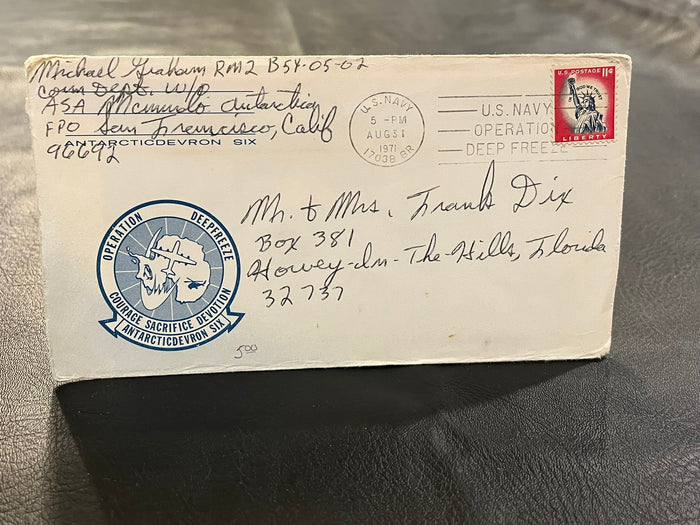 Michael Graham RM2 B54-05-02
Comm Dept. W/P
ASA McMurdo Antarctica
FPO San Francisco, Calif
96692
ANTARCTICDEVRON SIX
U.S. NAVY
5 -PM
AUG 31
1971
17038 BR.
U.S. NAVY
OPERATION
DEEP FREEZE
U.S. POSTAGE 11¢
IN GOD WE TRUST
LIBERTY
Mr. & Mrs. Frank Dix
Box 381
Howey-In-The-Hills, Florida
32737
OPERATION DEEPFREEZE
COURAGE SACRIFICE DEVOTION
ANTARCTICDEVRON SIX
5.00